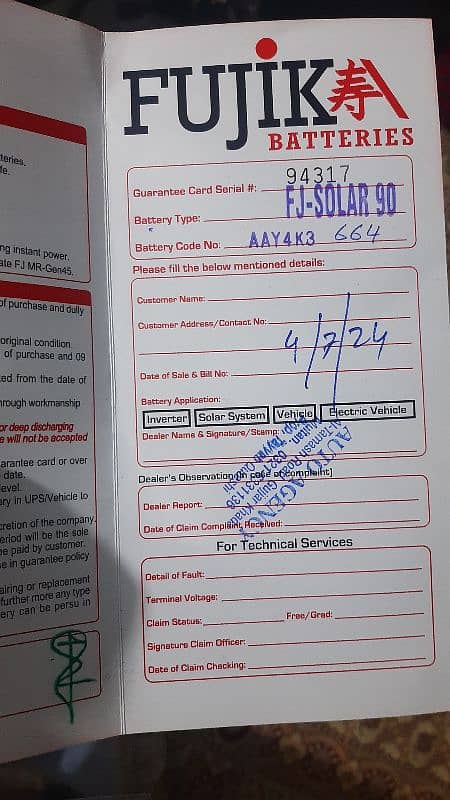 teries.
fe.
ng instant power.
ate FJ MR-Gen45.
of purchase and dully
original condition.
of purchase and 09
ted from the date of
hrough workmanship
or deep discharging
e will not be accepted
arantee card or over
date.
level.
ery in UPS/Vehicle to
cretion of the company.
eriod will be the sole
e paid by customer.
e in guarantee policy
airing or replacement
further more any type
ery can be persu in
FUJIKA 寿
BATTERIES
Guarantee Card Serial #: 94317
Battery Type: FJ-SOLAR 90
Battery Code No: AAY4K3 664
Please fill the below mentioned details:
Customer Name:
Customer Address/Contact No:
4/7/24
Date of Sale & Bill No:
Battery Application:
Inverter Solar System Vehicle Electric Vehicle
Dealer Name & Signature/Stamp:
AUTO AGENCY
Dealer's Observation (in case of complaint)
Dealer Report:
Date of Claim Complaint Received:
For Technical Services
Detail of Fault:
Terminal Voltage:
Claim Status: Free/Grad:
Signature Claim Officer:
Date of Claim Checking: